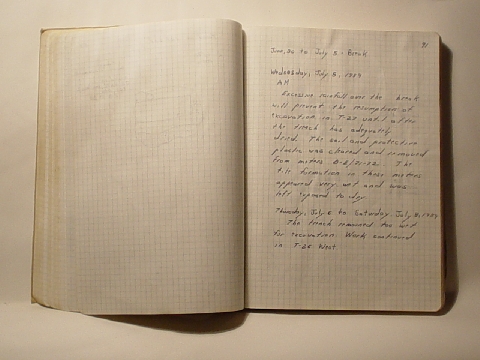 91
June 30 to July 5 - Break
Wednesday, July 5, 1989
AM
Excessive rainfall over the break
will prevent the resumption of
excavation in T-25 until after
the trench has adequately
dried. The soil and protective
plastic was cleared and removed
from metres The
till formation in these metres
appeared very wet and was
left exposed to dry.
Thursday, July 6 to Saturday, July 8, 1989
The trench remained too wet
for excavation. Work continued
in T-26 West